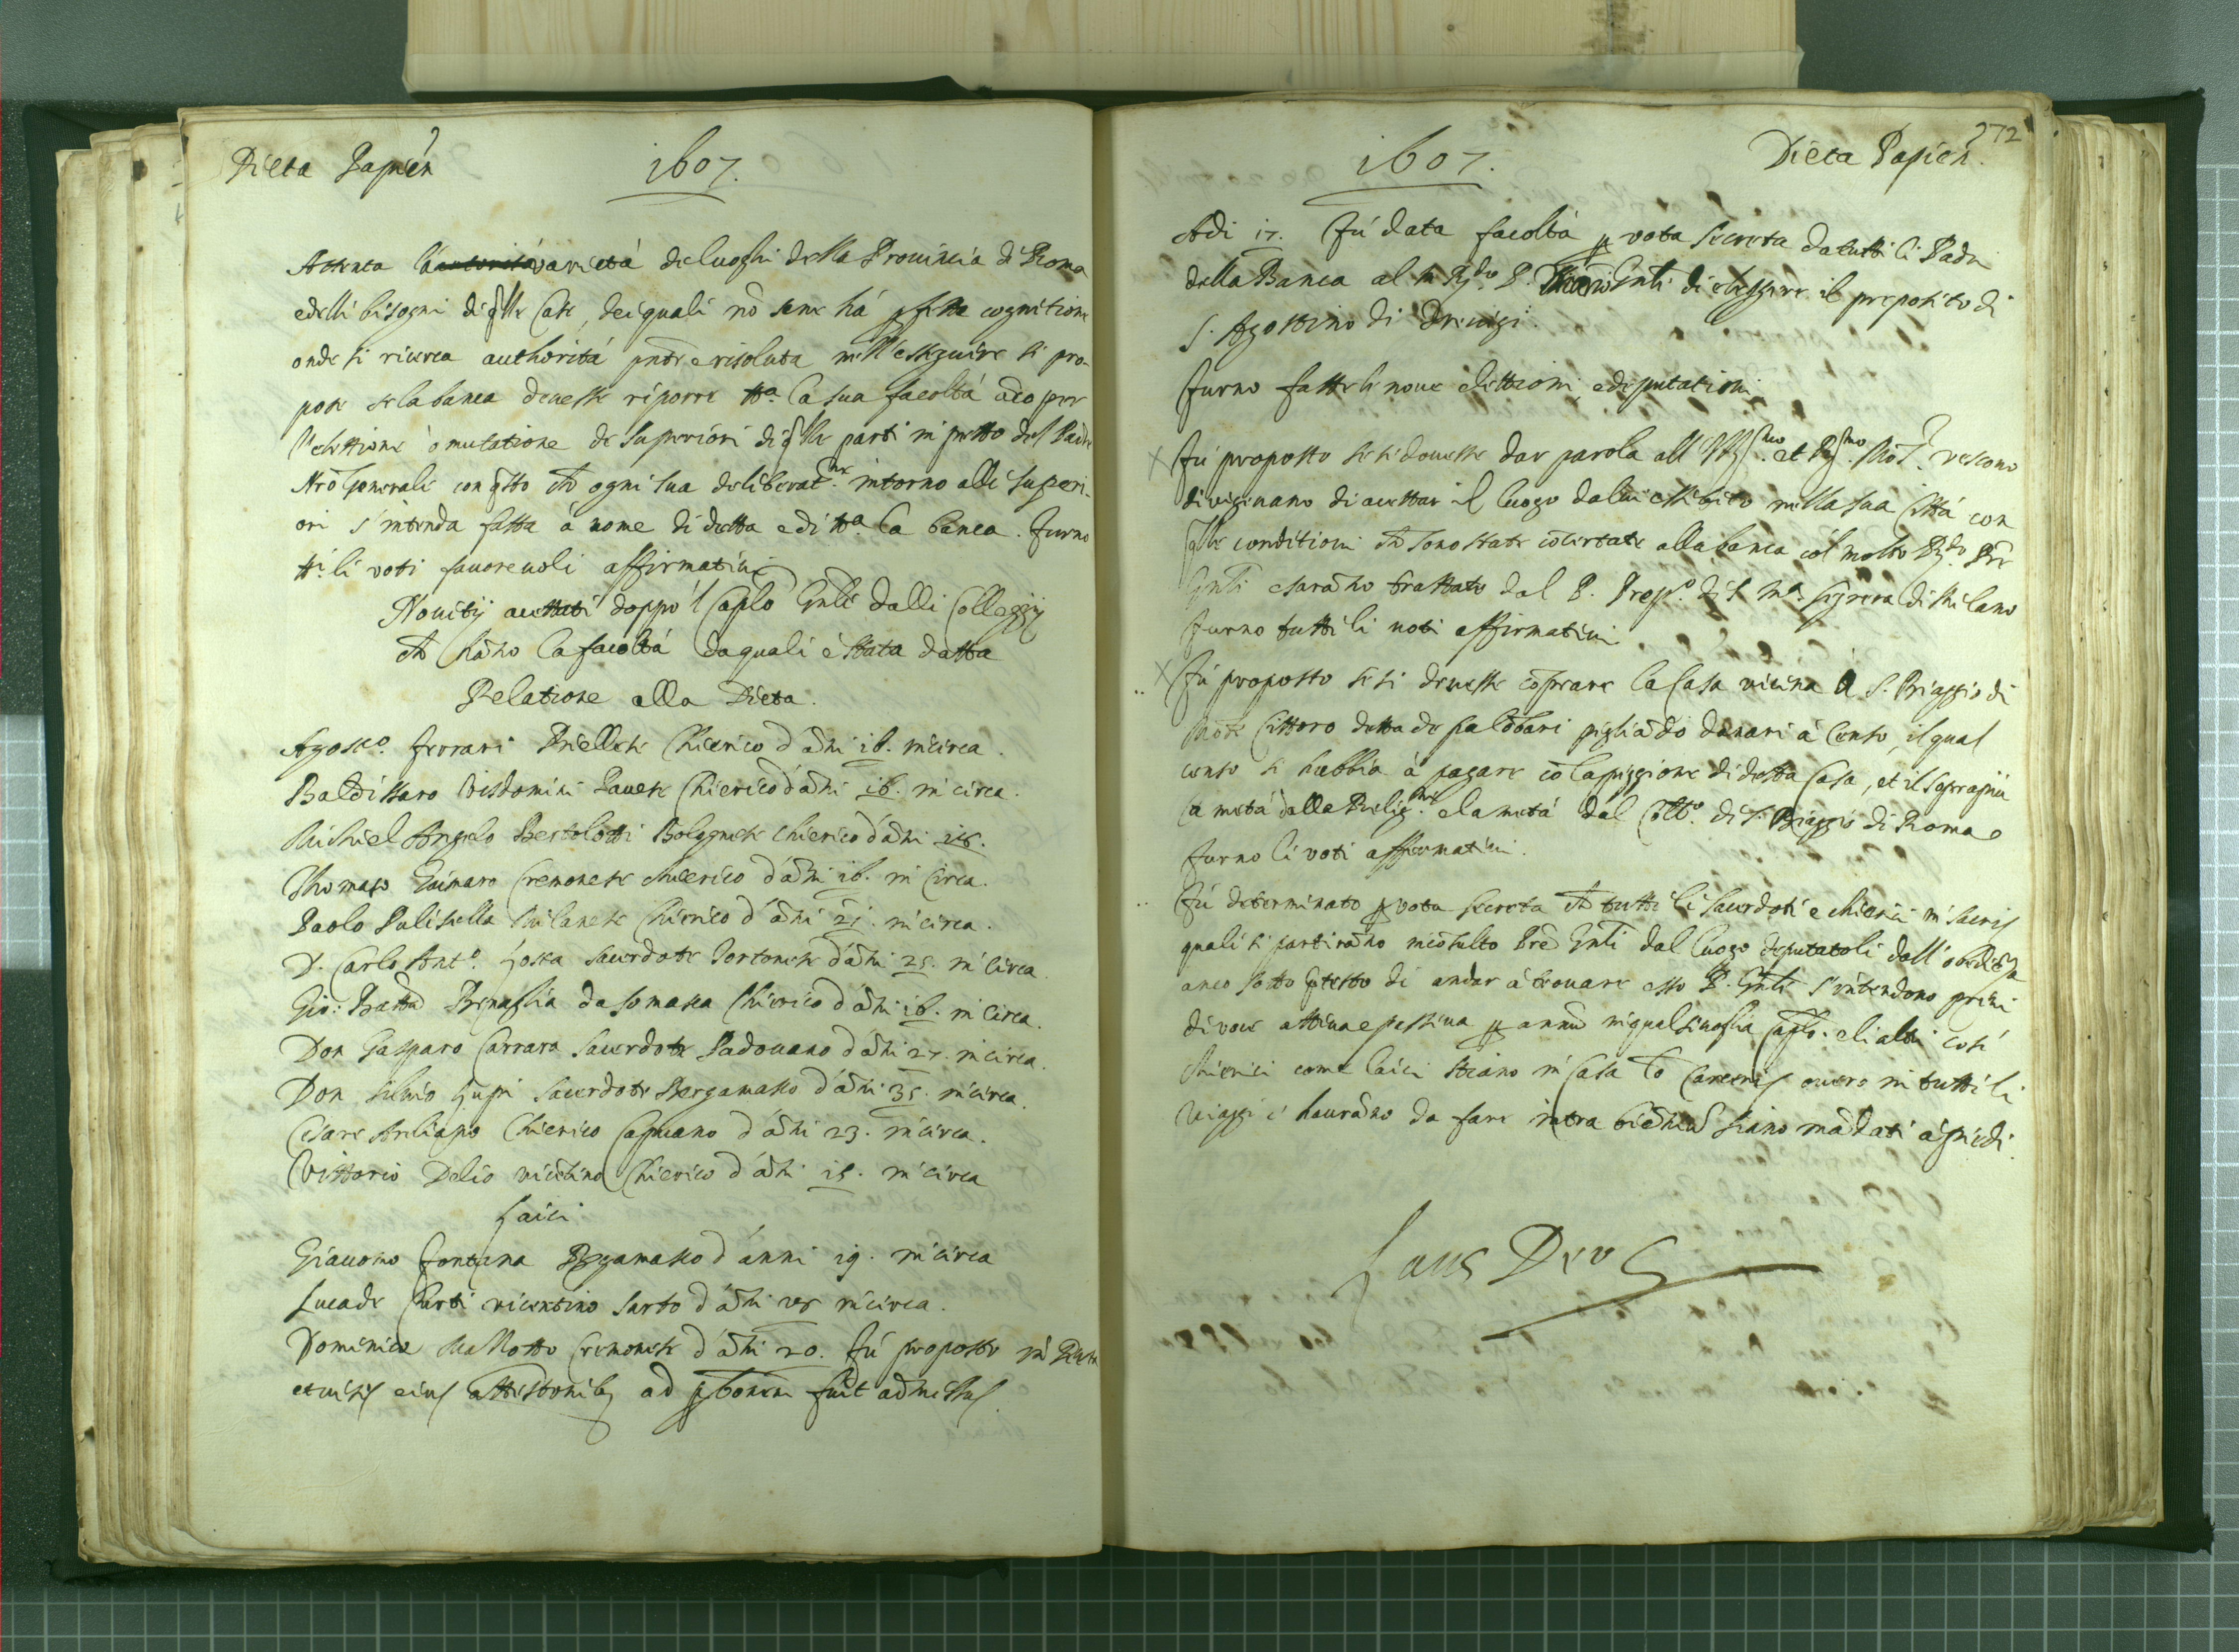 Dieta Papień
1607.
Attenta la varietà de luoghi della Provincia di Roma
e delli bisogni di qlle Case, dei quali nõ sene há pfetta cognitione
onde si ricerca authoritá pnte e risoluta nell'esseguire si pro-
pose se la banca dovesse riporre tta. la sua facoltá aco per
l'elettione o mutatione de superiori di qlle parti in petto del Padre
Nrõ Generale con qsto ch ogni sua deliberatne. intorno alli superi-
ori s'intenda fatta á nome di detta e di tta. la banca. Furno
tti. li voti favorevoli affirmativi
Novitij accettati doppo 'l Caplõ Gnle dalli Collegij
ch hãno la facoltá da quali è stata datta
Relatione alla Dieta.
Agosto. Ferrari Biellese Chierico d'ãni 16. in circa.
Baldissaro Visdomini Pavese Chierico d'ãni 16. in circa.
Michiel Angelo Bertolotti Bolognese chierico d'ãni 18.
Thomaso Gaimaro Cremonese chierico d'ãni 16. in circa.
Paolo Pulisella Milanese Chierico d'ãni 21. in circa.
D. Carlo Anto. Sacerdote Tortonese d'ãni 25. in circa.
Gio: Battã Benaglia da Somasca Chierico d'ãni 16. in circa.
Don Gasparo Carrara Sacerdote Padovano d'ãni 27. in circa.
Don Silvio Lupi Sacerdote Bergamasco d'ãni 35. in circa.
Cesare Chierico Capuano d'ãni 23. in circa.
Vittorio Delio vicẽtino Chierico d'ãni 18. in circa
Laici
Giacomo Fontana Bergamasco d'anni 19. in circa
Luca de Curti vicentino sarto d'ãni 28 in circa.
Domenico Mallotto Cremonese d'ãni 20. Fú proposto in Dieta
et visis eius attestonibq ad pbonem fuit admissus.
272
1607.
Dieta Papień.
Adi 17. Fú data facoltá p vota secreta da tutti li Padri
della Banca al m. Rdo. P. Gnle di eleggere il preposito di
S. Agostino di Trevigi.
Furno fatte le nove elettioni, e deputationi
X Fú proposto se si dovesse dar parola all'Illmo. et Rmo. Mõs. vescovo
di vigevano di accettar il luogo da lui essibito nella sua Cittá con
qlle conditioni ch sono state cõcertate alla banca col molto Rdo. Prẽ
Gnle e sarãno trattate dal P. Prepo. di S. Ma. Segreta di Milano
Furno tutti li voti affirmativi
X Fú proposto se si dovesse cõprare la Casa vicina á S. Biaggio di
Mõte Cittoro detta de Palõbari pigliãdo danari á Censo, il qual
censo si habbia á pagare cõ la piggione di detta Casa, et il soprapiú
la metá dalla Religne. e la metá dal Collo. di S. Biaggio di Roma e
furno li voti affirmativi.
Fú determinato p vota secreta ch tutti li Sacerdoti e chierici in sacris
quali si partirãno incõsulto Prẽ Gnli dal luogo deputatoli dall'obediẽza
anco sotto ptesto di andar á trovare esso P. Gnle s'intendono privi
di voce attiva e passiva p annũ in qualsivoglia Caplo. e li altri cosí
chierici come laici stiano in Casa to Carceris overo in tutti li
viaggi c'haurãno da fare intra biẽniũ siano mãdati á piedi.
Laus Deo